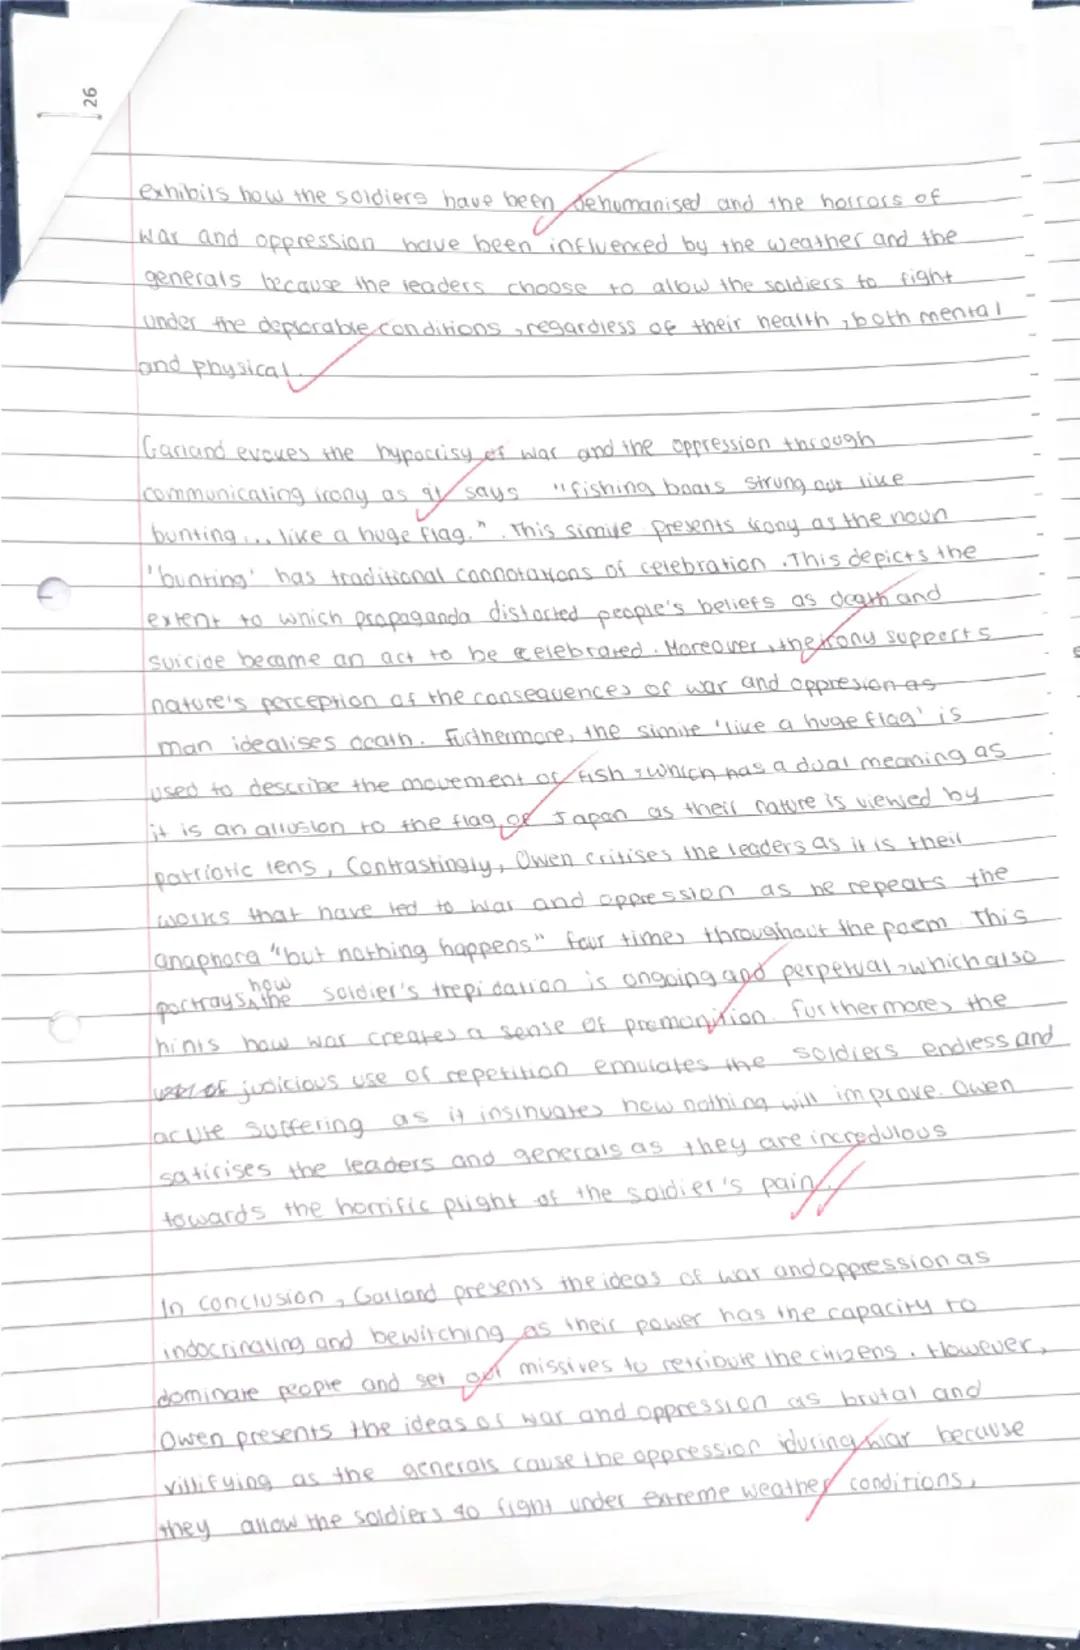 26
exhibits how the soldiers have been dehumanised and the horrors of
war and oppression have been influenced by the weather and the
generals because the leaders choose to allow the soldiers to fight
under the deplorable conditions, regardless of their health, both mental
and physical.
Garland evokes the hypocrisy of war and the oppression through
communicating irony as it says "fishing boats strung out like
bunting... like a huge flag.". This simile presents irony as the noun
'bunting' has traditional connotations of celebration. This depicts the
extent to which propaganda distorted people's beliefs as death and
suicide became an act to be celebrated. Moreover, the irony supports
nature's perception of the consequences of war and oppresion as
man idealises death. Furthermore, the simile 'like a huge flag' is
used to describe the movement of fish, which has a dual meaning as
it is an allusion to the flag of Japan as their nature is viewed by
patriotic lens, Contrastingly, Owen critises the leaders as it is their
works that have led to war and oppression as he repears the
anaphora "but nothing happens" four times throughout the poem. This
portrays how the soldier's trepidation is ongoing and perpetual, which also
hints how war creates a sense of premonition. Furthermore, the
judicious use of repetition emulates the soldiers endless and
acute suffering as it insinuates how nothing will improve. Owen
satirises the leaders and generals as they are incredulous
towards the horrific plight of the soldier's pain.
In conclusion, Garland presents the ideas of war and oppression as
indocrinating and bewitching as their power has the capacity to
dominate people and set out missives to retribute the citizens. However,
Owen presents the ideas of war and oppression as brutal and
villifying as the generals cause the oppression during war because
they allow the soldiers to fight under extreme weather conditions,